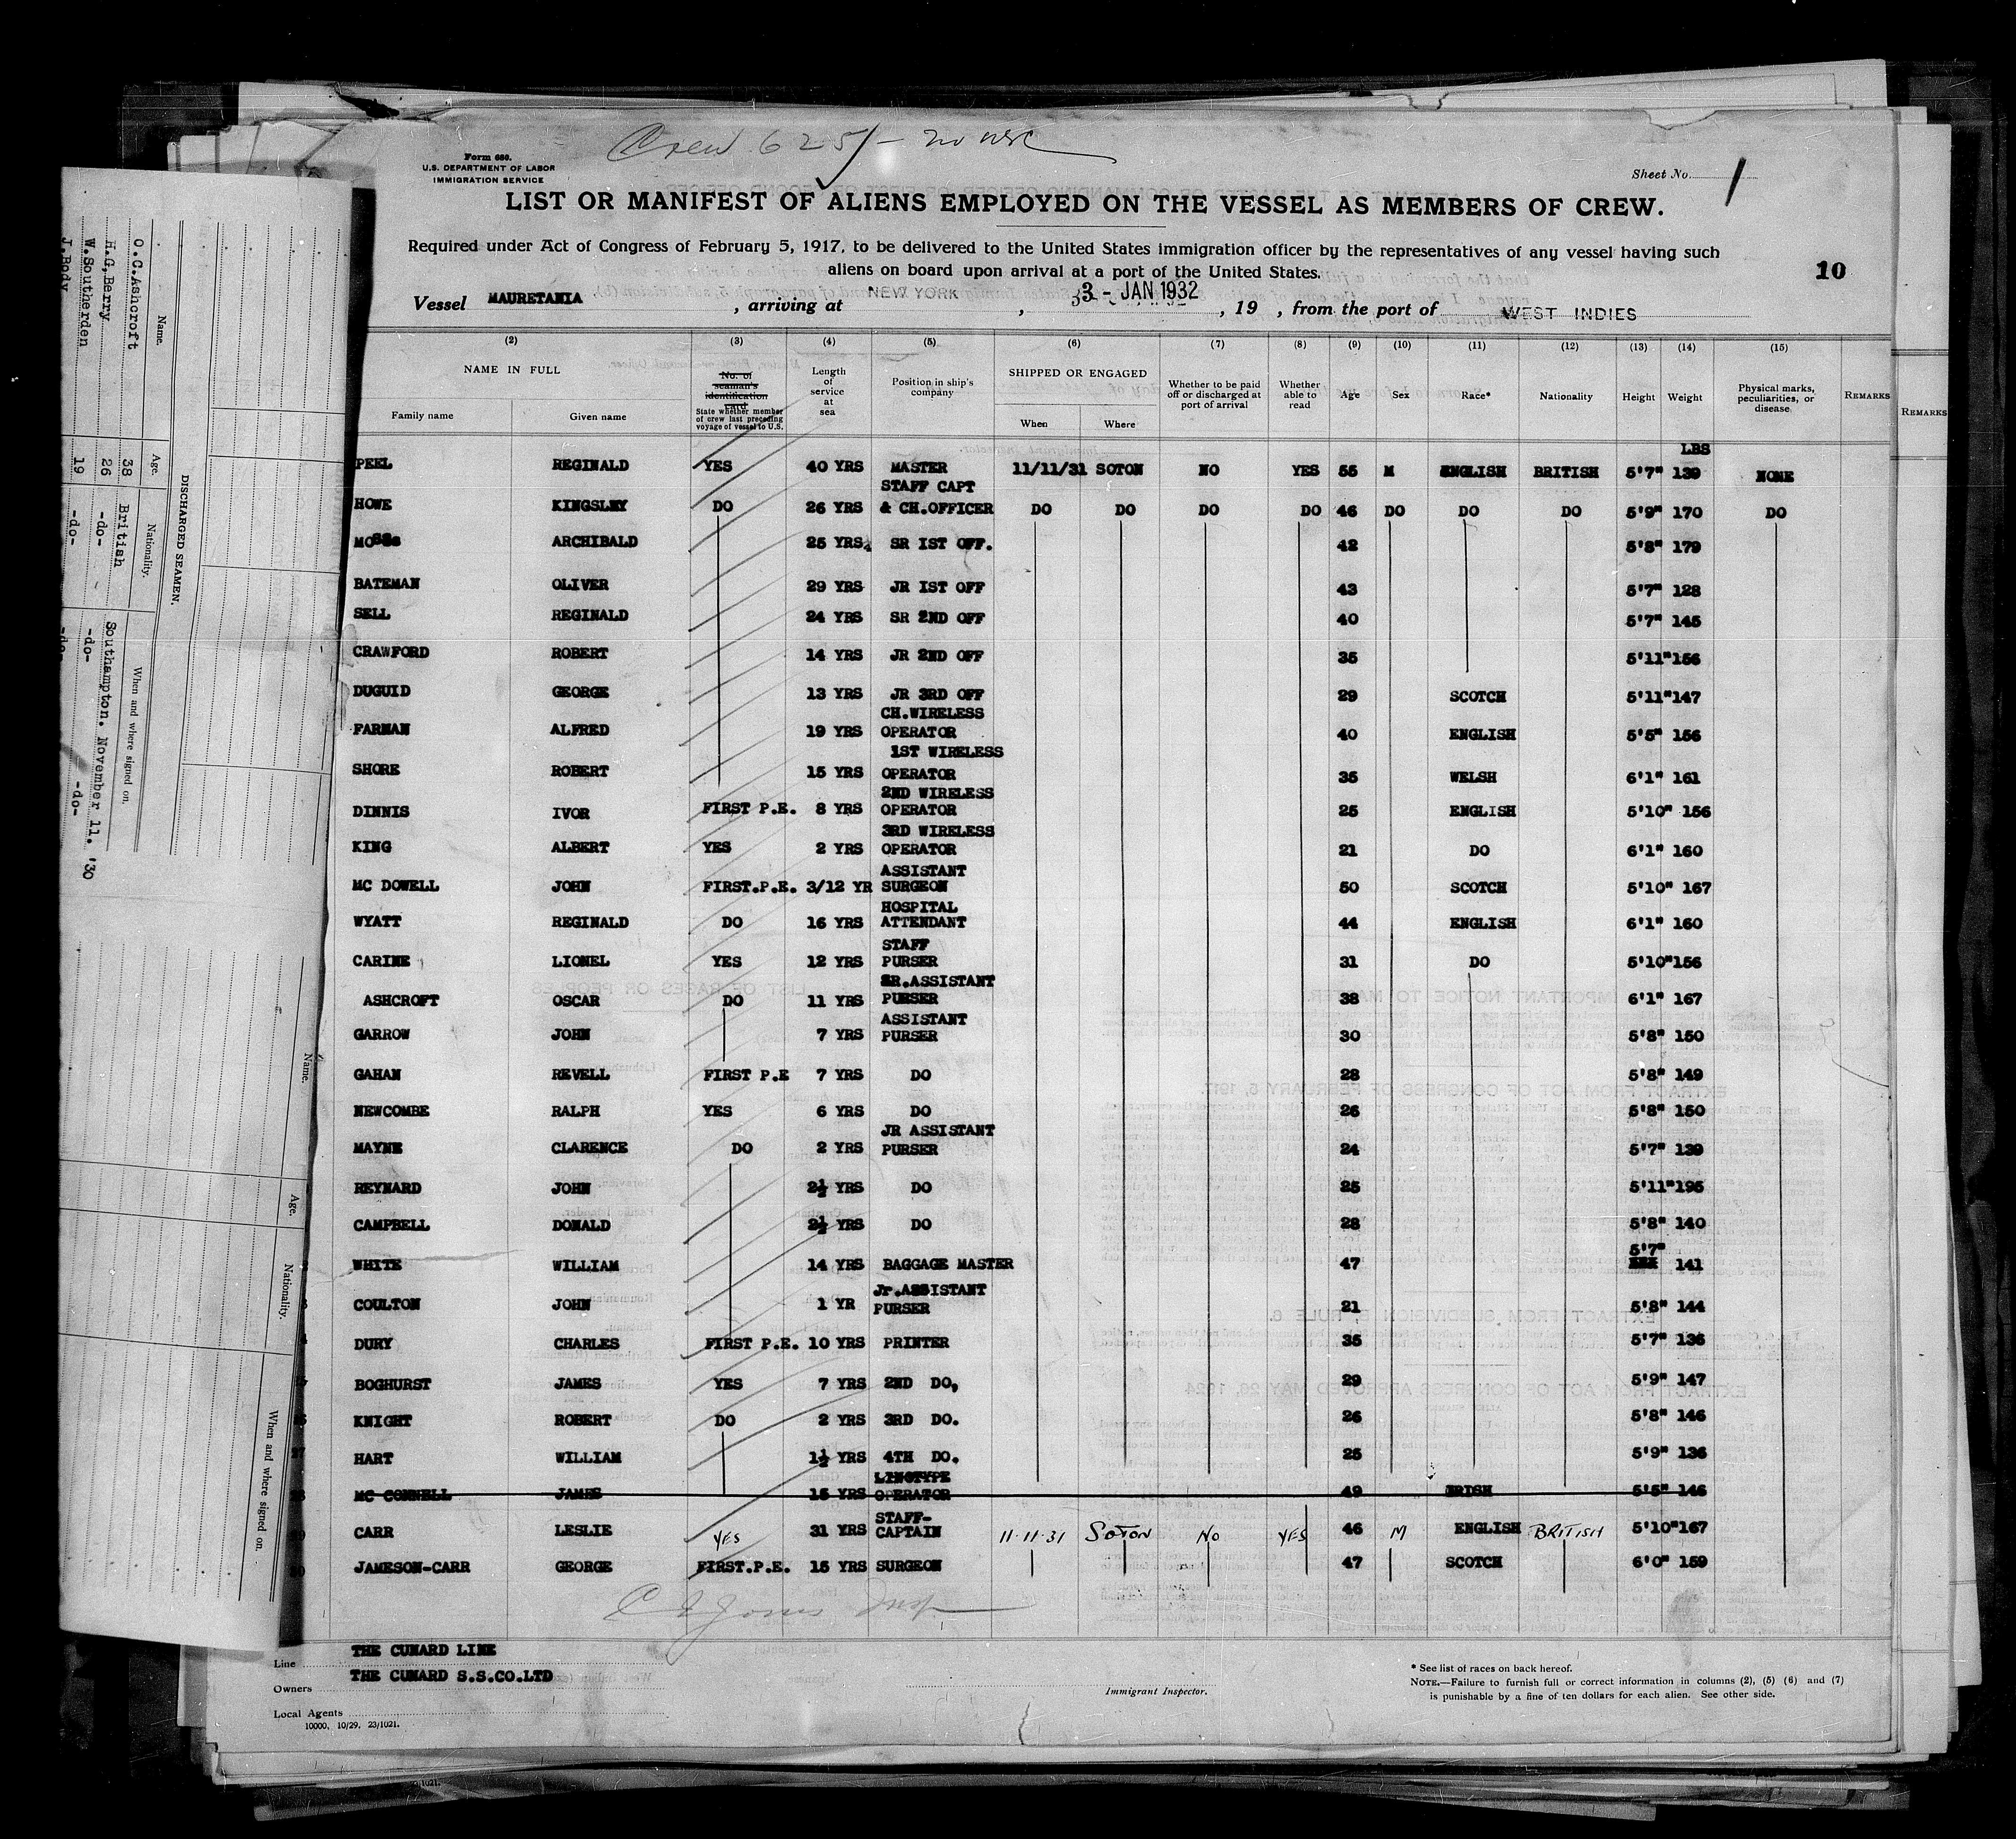 Crew 625 -
Form 686.
U.S. DEPARTMENT OF LABOR
IMMIGRATION SERVICE
Sheet No. 1
LIST OR MANIFEST OF ALIENS EMPLOYED ON THE VESSEL AS MEMBERS OF CREW.
Required under Act of Congress of February 5, 1917, to be delivered to the United States immigration officer by the representatives of any vessel having such
aliens on board upon arrival at a port of the United States.
10
Vessel MAURETANIA, arriving at NEW YORK, 3 - JAN 1932, 19 , from the port of WEST INDIES
(2) (3) (4) (5) (6) (7) (8) (9) (10) (11) (12) (13) (14) (15)
NAME IN FULL
Family name Given name
No. of seaman's identification card
State whether member of crew last preceding voyage of vessel to U.S.
Length of service at sea
Position in ship's company
SHIPPED OR ENGAGED
When Where
Whether to be paid off or discharged at port of arrival
Whether able to read
Age Sex Race* Nationality Height Weight
Physical marks, peculiarities, or disease
REMARKS
REMARKS
LBS
PEEL REGINALD YES 40 YRS MASTER 11/11/31 SOTON NO YES 55 M ENGLISH BRITISH 5'7" 139 NONE
HOWE KINGSLEY DO 26 YRS STAFF CAPT & CH.OFFICER DO DO DO DO 46 DO DO DO 5'9" 170 DO
MOSSs ARCHIBALD 25 YRS. SR 1ST OFF. 42 5'8" 179
BATEMAN OLIVER 29 YRS JR 1ST OFF 43 5'7" 128
SELL REGINALD 24 YRS SR 2ND OFF 40 5'7" 145
CRAWFORD ROBERT 14 YRS JR 2ND OFF 35 5'11" 156
DUGUID GEORGE 13 YRS JR 3RD OFF 29 SCOTCH 5'11" 147
FARMAN ALFRED 19 YRS CH.WIRELESS OPERATOR 40 ENGLISH 5'5" 156
SHORE ROBERT 15 YRS 1ST WIRELESS OPERATOR 35 WELSH 6'1" 161
DINNIS IVOR FIRST P.E. 8 YRS 2ND WIRELESS OPERATOR 25 ENGLISH 5'10" 156
KING ALBERT YES 2 YRS 3RD WIRELESS OPERATOR 21 DO 6'1" 160
MC DOWELL JOHN FIRST.P.E. 3/12 YR ASSISTANT SURGEON 50 SCOTCH 5'10" 167
WYATT REGINALD DO 16 YRS HOSPITAL ATTENDANT 44 ENGLISH 6'1" 160
CARINE LIONEL YES 12 YRS STAFF PURSER 31 DO 5'10" 156
ASHCROFT OSCAR DO 11 YRS SR.ASSISTANT PURSER 38 6'1" 167
GARROW JOHN 7 YRS ASSISTANT PURSER 30 5'8" 150
GAHAN REVELL FIRST P.E 7 YRS DO 28 5'8" 149
NEWCOMBE RALPH YES 6 YRS DO 26 5'8" 150
MAYNE CLARENCE DO 2 YRS JR ASSISTANT PURSER 24 5'7" 139
REYNARD JOHN 2½ YRS DO 25 5'11" 195
CAMPBELL DONALD 2½ YRS DO 28 5'8" 140
WHITE WILLIAM 14 YRS BAGGAGE MASTER 47 5'7" 141
COULTON JOHN 1 YR Jr.ASSISTANT PURSER 21 5'8" 144
DURY CHARLES FIRST P.E. 10 YRS PRINTER 35 5'7" 136
BOGHURST JAMES YES 7 YRS 2ND DO, 29 5'9" 147
KNIGHT ROBERT DO 2 YRS 3RD DO. 26 5'8" 146
HART WILLIAM 1½ YRS 4TH DO. 25 5'9" 136
MC CONNELL JAMES 15 YRS LINOTYPE OPERATOR 49 IRISH 5'5" 146
CARR LESLIE YES 31 YRS STAFF-CAPTAIN 11.11.31 SOTON NO YES 46 M ENGLISH BRITISH 5'10" 167
JAMESON-CARR GEORGE FIRST.P.E. 15 YRS SURGEON 47 SCOTCH 6'0" 159
Line THE CUNARD LINE
Owners THE CUNARD S.S.CO.LTD
Local Agents
10000. 10/29. 23/1021.
Immigrant Inspector.
* See list of races on back hereof.
NOTE.—Failure to furnish full or correct information in columns (2), (5) (6) and (7)
is punishable by a fine of ten dollars for each alien. See other side.
DISCHARGED SEAMEN.
Name. Age. Nationality. When and where signed on.
O.C.Ashcroft 38 British Southampton. November 11. '30
H.G.Berry 26 -do- -do-
W.Southerden 19 -do- -do-
J.Body -do-
Name. Age. Nationality. When and where signed on.